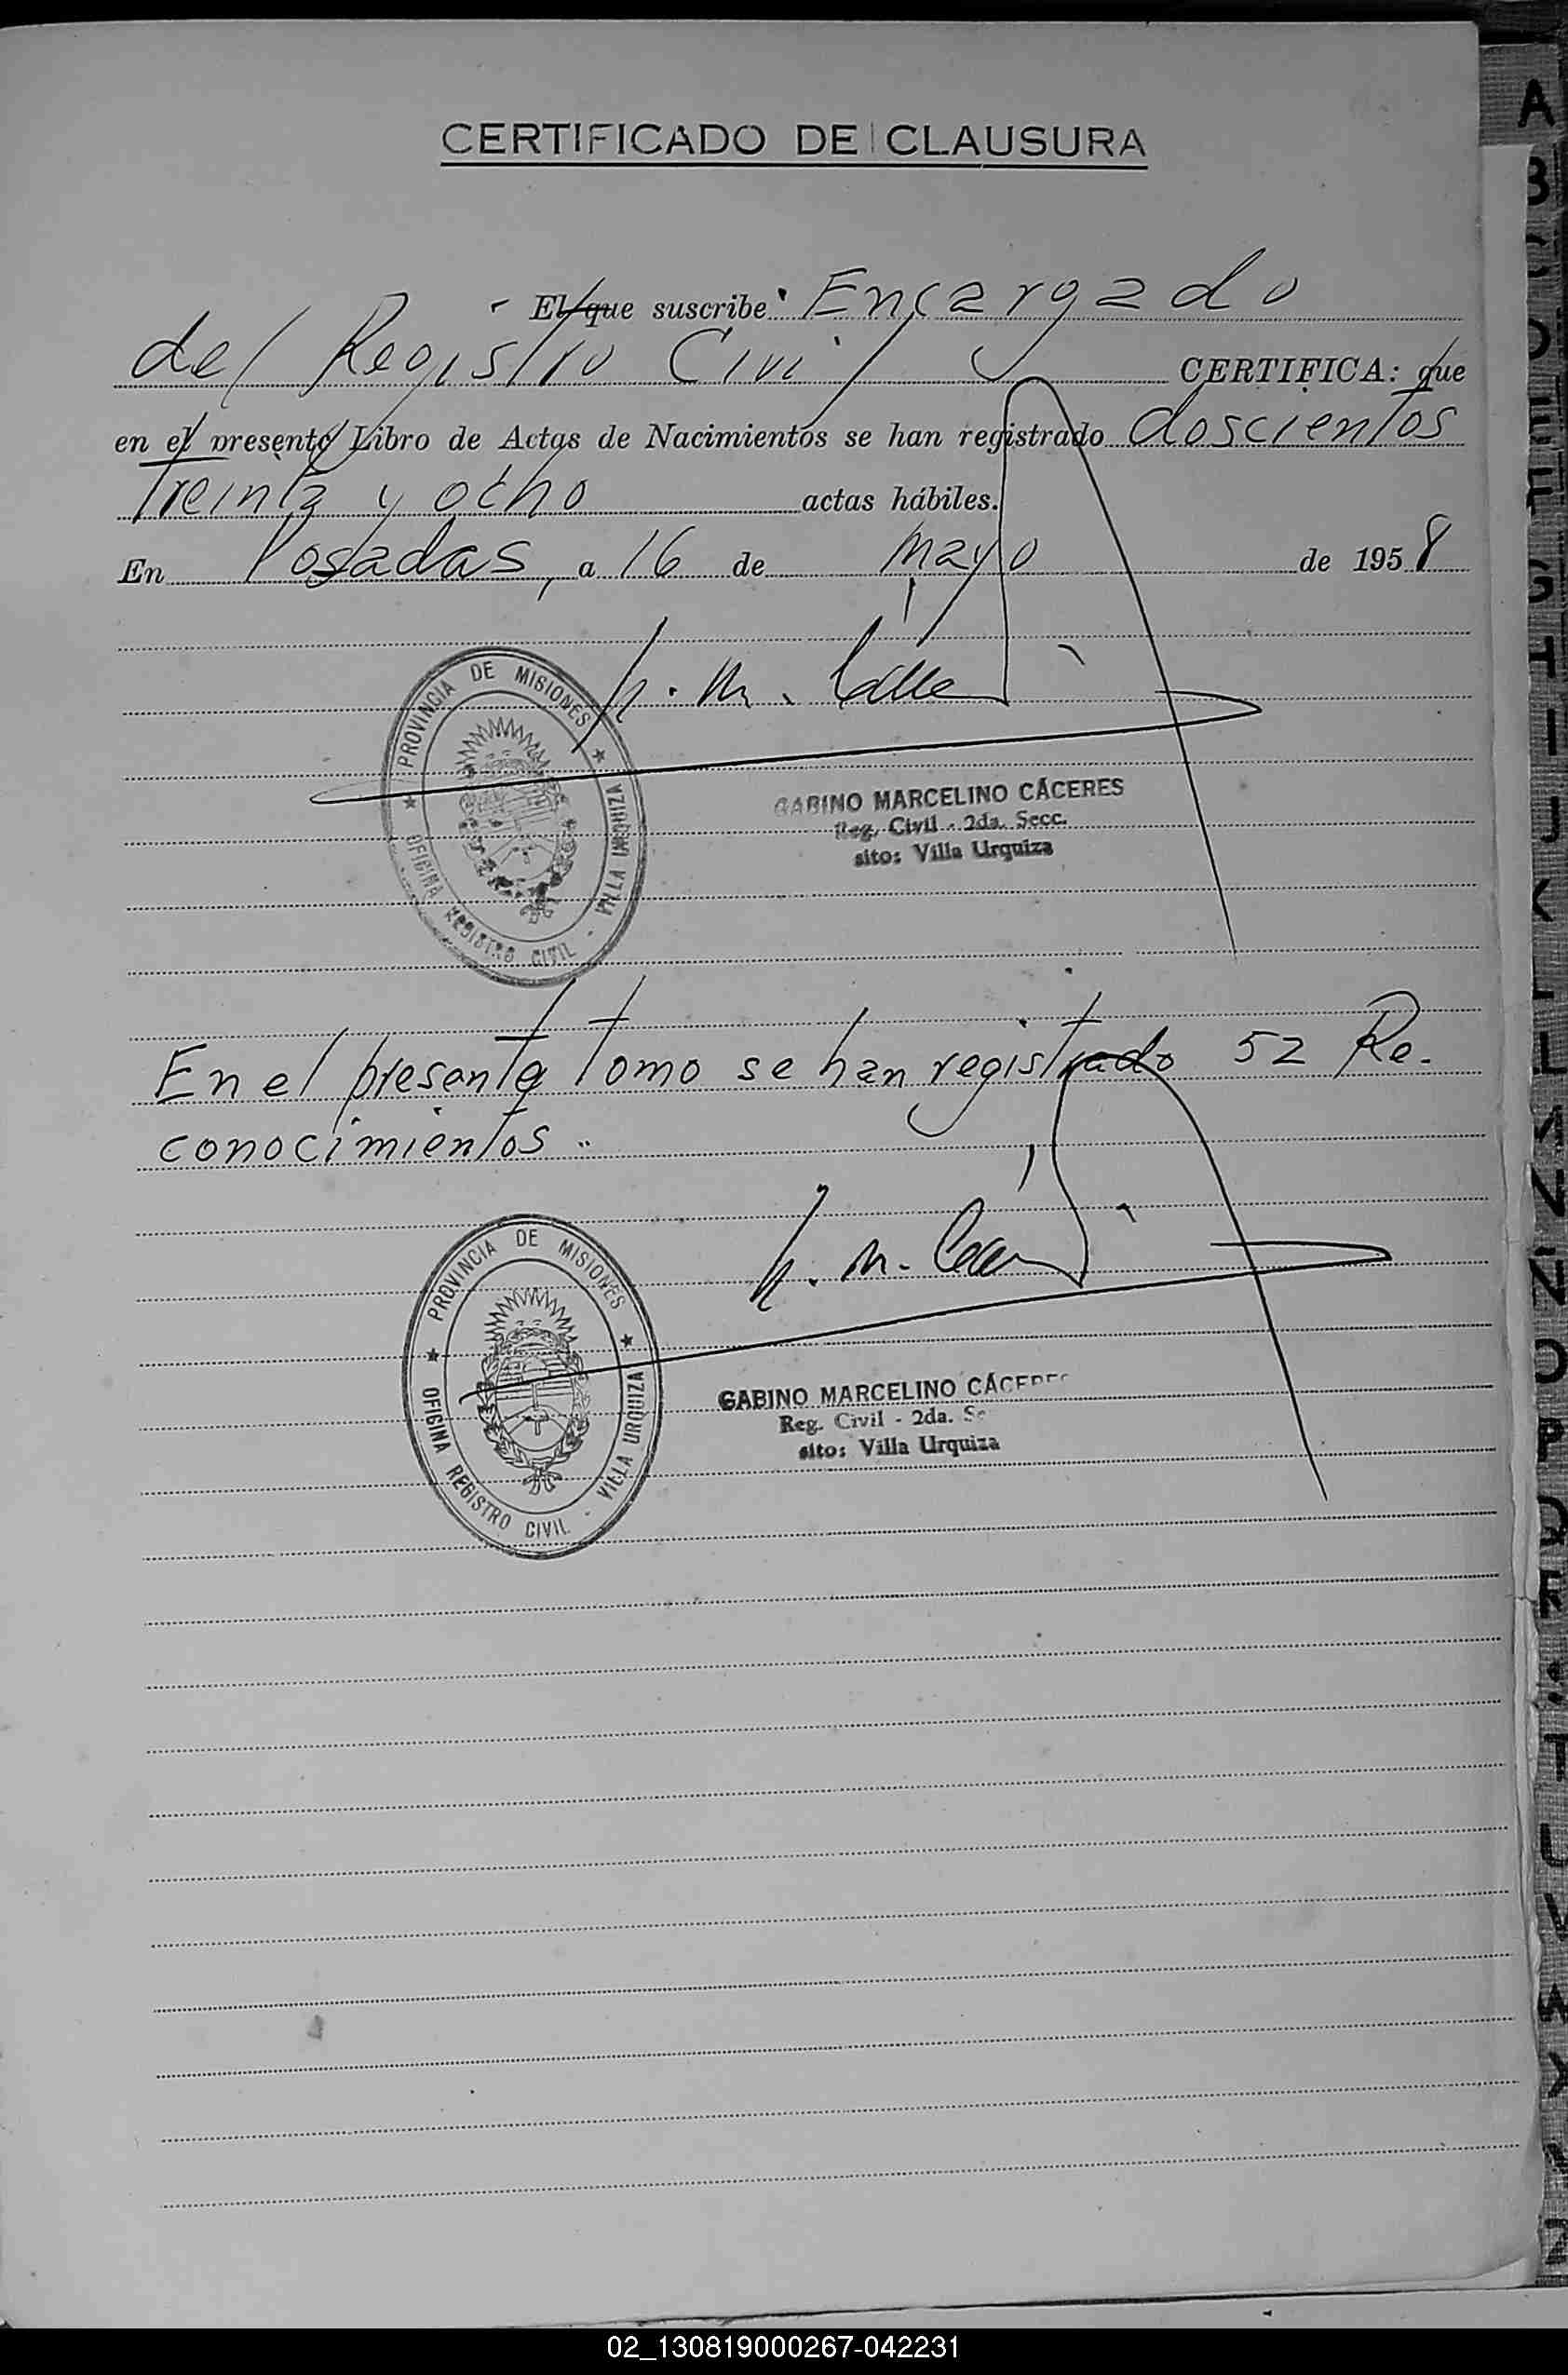 CERTIFICADO DE CLAUSURA
El que suscribe Encargado
del Registro Civil CERTIFICA: que
en el presente Libro de Actas de Nacimientos se han registrado doscientos
treinta y ocho actas hábiles.
En Posadas, a 16 de mayo de 1958
PROVINCIA DE MISIONES
OFICINA REGISTRO CIVIL - VILLA URQUIZA
GABINO MARCELINO CÁCERES
Reg. Civil - 2da. Secc.
sito: Villa Urquiza
En el presente tomo se han registrado 52 Re-
conocimientos..
PROVINCIA DE MISIONES
OFICINA REGISTRO CIVIL - VILLA URQUIZA
GABINO MARCELINO CÁCERES
Reg. Civil - 2da. Se
sito: Villa Urquiza
02_130819000267-042231